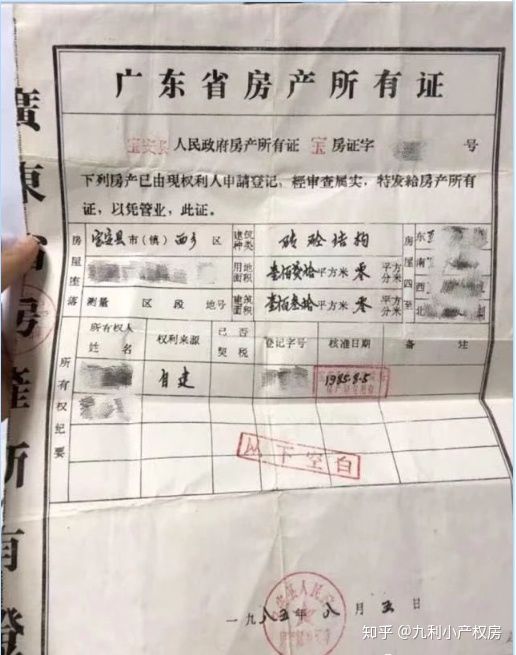 广东省房产所有证
宝安县 人民政府房产所有证 宝 房证字 号
下列房产已由现权利人申請登记，經审查属实，特发給房产所有
证，以凭管业，此证。
房屋座落
宝安县市（镇）西乡 区
测量 区 段 地号
建筑种类 砖砼结构
用地面积 壹佰叁拾平方米 零 平方分米
建筑面积 壹佰叁拾平方米 零 平方分米
房屋四至 东 南 西 北
所有权纪要
所有权人姓名 权利来源 已否契税 登记字号 核准日期 备 注
自建 1985.8.5
以下空白
一九八五年 八 月 五 日
廣東省房產所有證
知乎 @九利小产权房